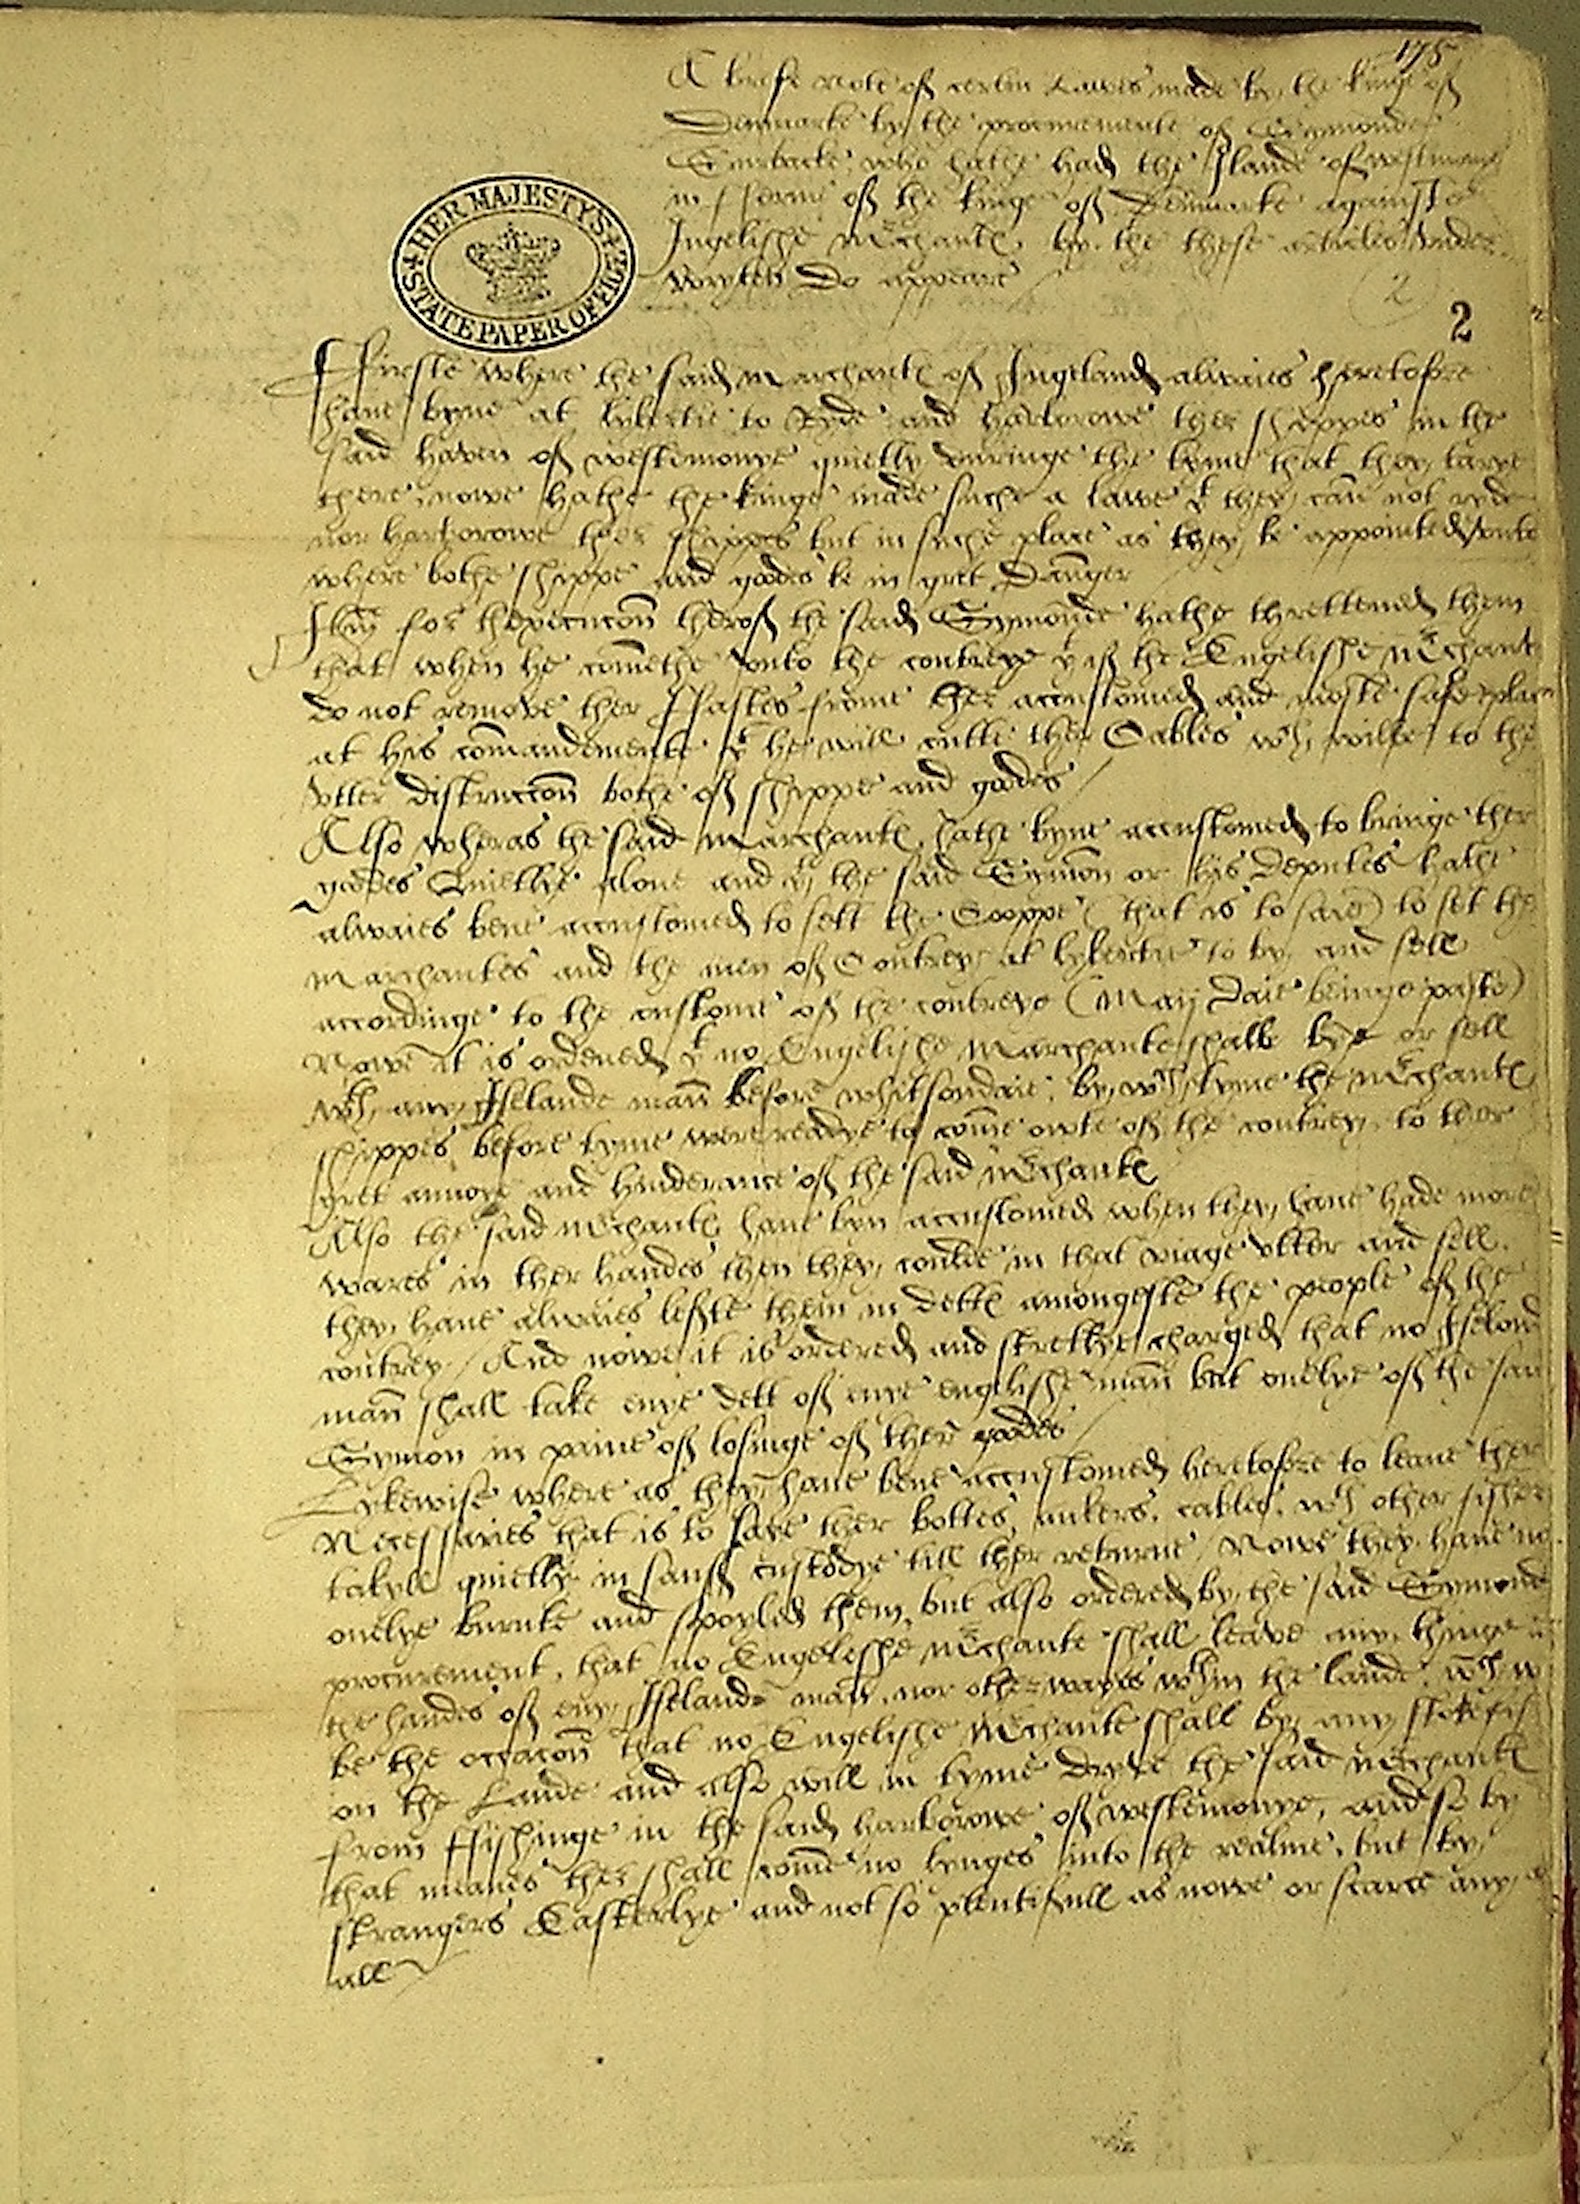 175
A brefe note of certin Lawes made by the kinge of
Denmarke by the procuremente of Symonde
Surbecke who hathe had the Ilande of westmony
in fferme of the kinge of Denmarke againste
Ingelishe Merchantes, by the these articles under
wryten Do appeare
HER MAJESTY'S STATE PAPER OFFICE
2
2
Ffirste where the said marchantes of Ingeland alwaies heretofore
have byne at lybertie to Ryde and harborowe ther shippes in the
said haven of westemonye quietly duringe the tyme that they tarye
there, nowe hathe the kinge made suche a lawe yt they can not ryde
nor harborowe ther shippes but in suche place as they be appointed unto
where bothe shippe and goodes be in gret Daunger
Itm for thexecucon therof the said Symonde hathe threttened them
that when he comethe unto the contreye yt if the Engelishe Merchantes
do not remove ther ffastes frome ther accustomed and moste safe place
at his comandemente yt he will cutte ther Cables wch wilbe to the
utter distruccon bothe of shippe and goodes
Also wheras the said marchantes, hathe byne accustomed to bringe ther
goodes Quietlye alone and yt the said Symon or his deputes hathe
alwaies bene accustomed to sett the Cooppe (that is to saie) to set the
marchantes and the men of Contrey at lybertie to by and sell
accordinge to the custome of the contreye (Maij Daie beinge paste)
Nowe it is ordened yt no Engelishe marchante shall bye or sell
wth any Iselande man before whitsondaie, by wch tyme the Merchantes
shippes before tyme were readye to come owte of the contrey, to ther
gret annoye and hinderance of the said Merchantes
Also the said Merchantes have byn accustomed when they have hade more
wares in ther handes then they coulde in that viage utter and sell,
they have alwaies lefte them in dettes amongeste the people of the
contrey / And nowe it is ordered and stretlye charged that no Iselond
man shall take enye dett of enye engelishe man but onelye of the said
Symon in paine of losinge of ther goodes
Lykewise where as they have bene accustomed heretofore to leave ther
Necessaries that is to saye ther bottes, ankers, cables, wth other fisher
takyll quietly in sauf custodye till ther retourne / Nowe they have not
onelye burnte and spoyled them, but also ordered by the said Symonde
procurement, that no Engeleshe Merchante shall leave any thinge in
the handes of eny Iselande man, nor otherwayes wthin the lande, wch w
be the occacon that no Engelishe Merchante shall by any stokefis
on the Lande and also will in tyme dryve the said Merchantes
from ffishinge in the said harborowe of westemonye, and so by
that meanes ther shall come no lynges into the realme, but by
strangers Easterlye and not so plentifull as nowe or scarce any
all